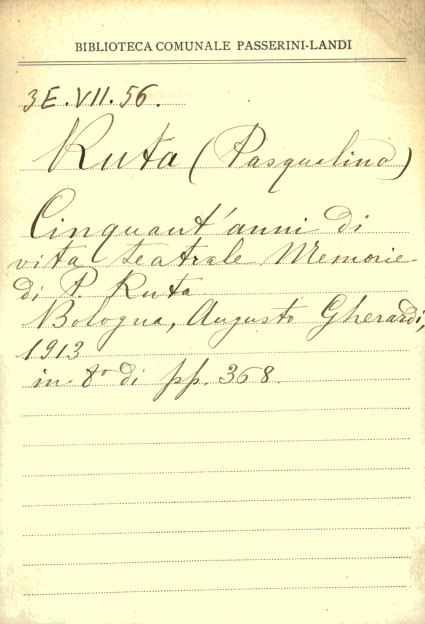 BIBLIOTECA COMUNALE PASSERINI-LANDI
3E.VII.56.
Ruta (Pasqualino)
Cinquant'anni di
vita teatrale Memorie
di P. Ruta
Bologna, Augusto Gherardi,
1913
in 8° di pp. 368.